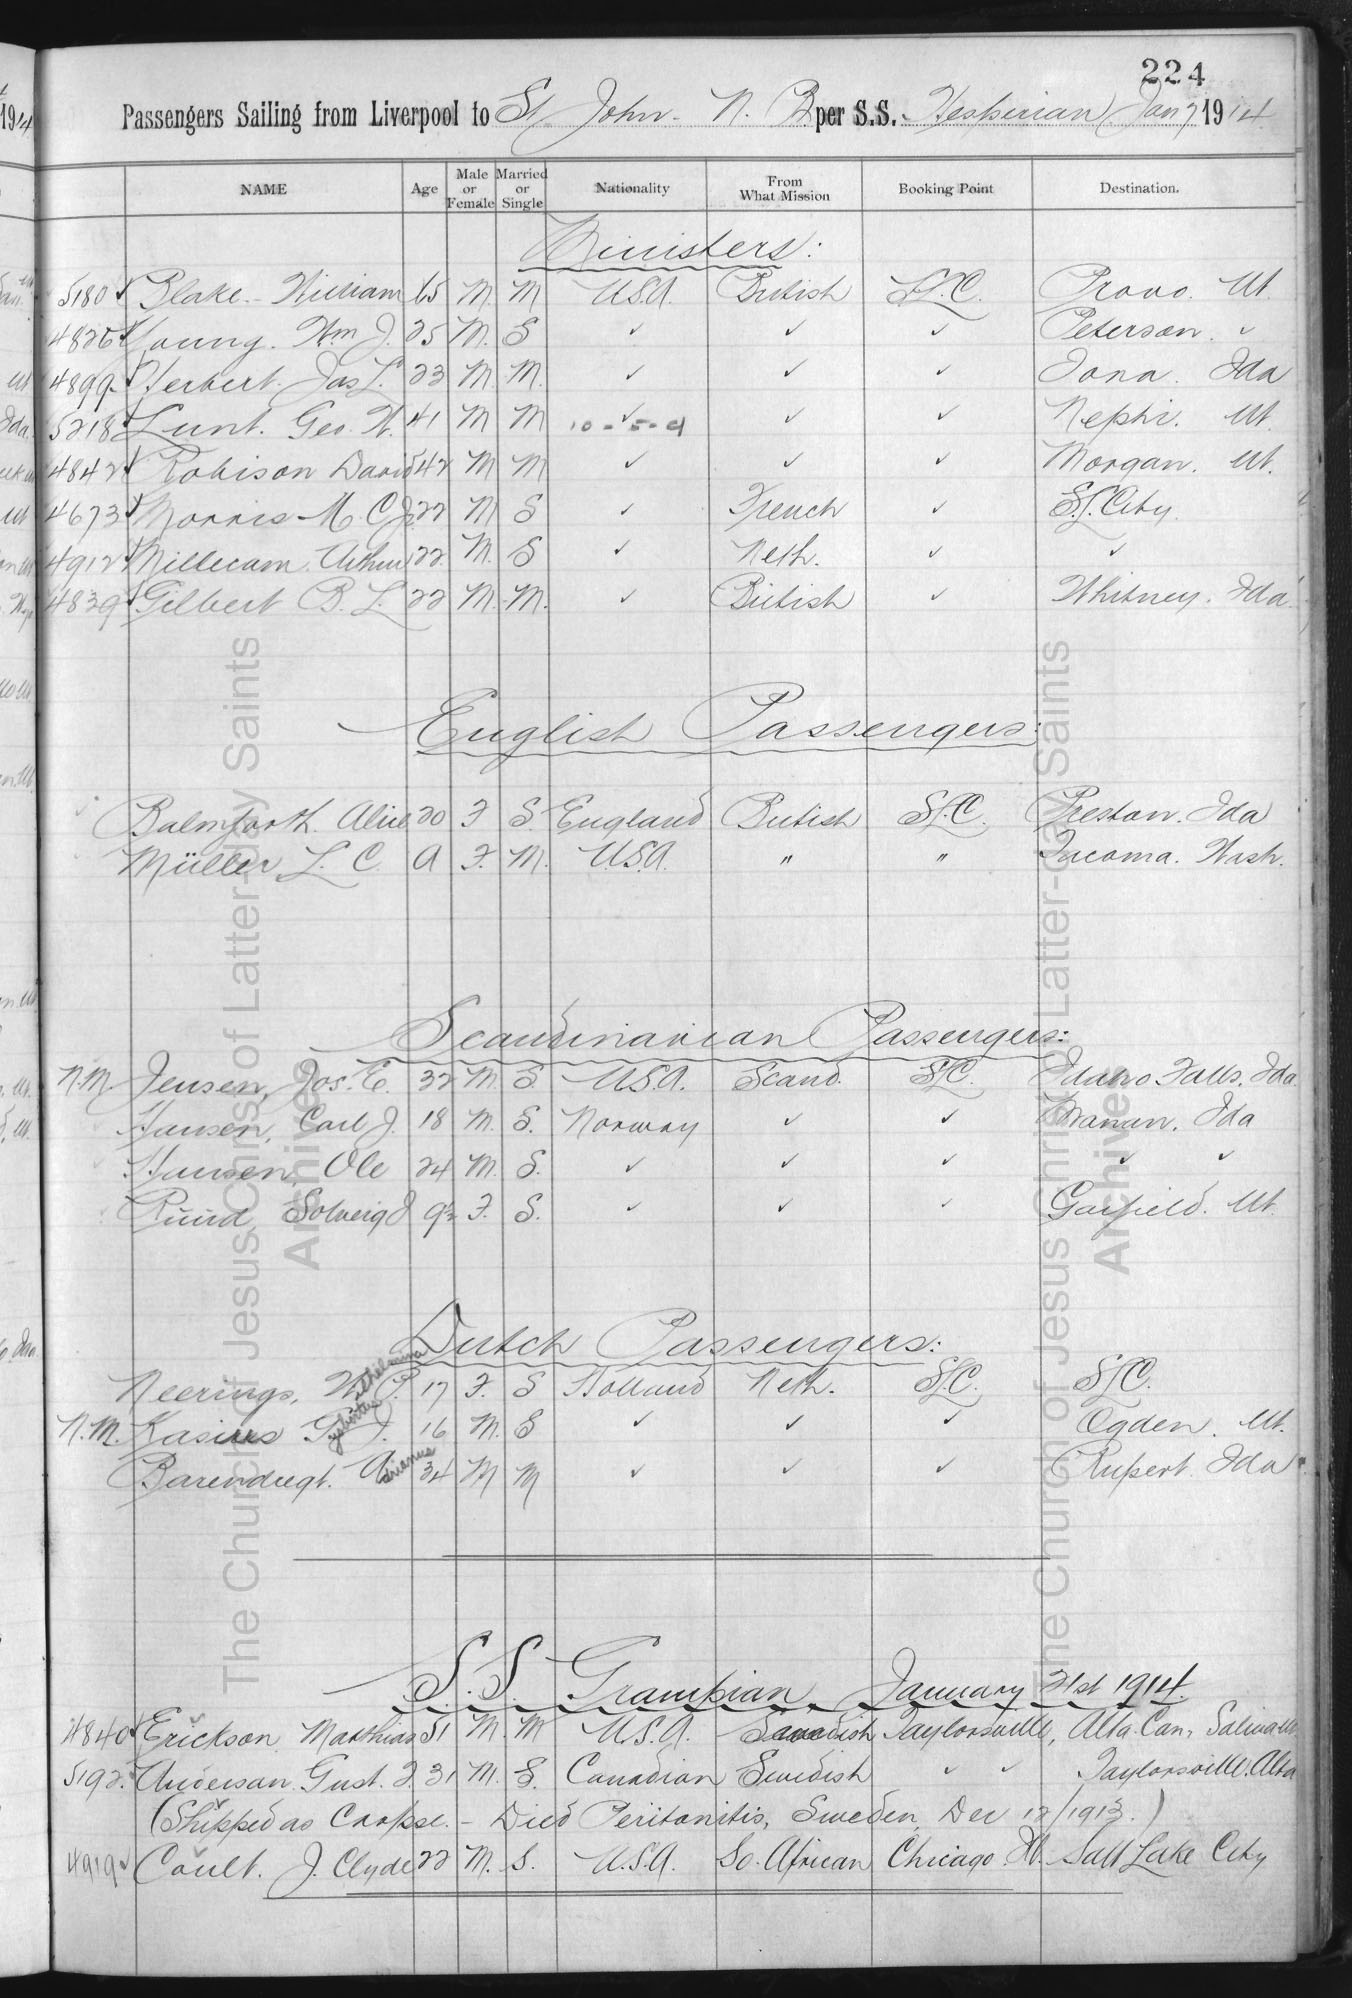 224
Passengers Sailing from Liverpool to St John - N. B. per S.S. Hesperian Jan 7 1914
NAME Age Male or Female Married or Single Nationality From What Mission Booking Point Destination.
Ministers:
5180 ✓ Blake - William 65 M. M U.S.A. British S.L.C. Provo. Ut.
4826 ✓ Young. Wm J. 25 M. S ✓ ✓ ✓ Peterson. ✓
4899 ✓ Herbert. Jas L. 23 M. M. ✓ ✓ ✓ Iona. Ida
5218 ✓ Lunt. Geo. W. 41 M M ✓ ✓ ✓ Nephi. Ut.
10-5-4
4842 ✓ Robison David 42 M M ✓ ✓ ✓ Morgan. Ut.
4673 ✓ Morris M. C. Jr. 22 M S ✓ French ✓ S.L. City.
4912 ✓ Millecam Arthur 22. M. S ✓ Neth. ✓ ✓
4839 ✓ Gilbert B. L. 22 M. M. ✓ British ✓ Whitney. Ida.
English Passengers:
Balmforth. Alice 20 F S. England British S.L.C. Preston. Ida
Müller L. C A F. M. U.S.A. " " Tacoma. Wash.
Scandinavian Passengers:
N.M. Jensen, Jos. E. 32 M. S. U.S.A. Scand. S.L.C. Idaho Falls. Ida.
Hansen, Carl J. 18 M. S. Norway ✓ ✓ Ida
Hansen, Ole 24 M. S. ✓ ✓ ✓ ✓ ✓
Ruud, Solveig J F. S. ✓ ✓ ✓ Garfield. Ut.
Dutch Passengers:
Neerings, W. P. 17 F. S Holland Neth. S.L.C. S.L.C.
N.M. Kasius G. J. 16 M. S ✓ ✓ ✓ Ogden. Ut.
Barendregt. Adrianus 34 M M ✓ ✓ ✓ Rupert. Ida.
S.S. Grampian. January 21st 1914.
4840 ✓ Erickson Matthias 51 M. M U.S.A. Swedish Taylorsville, Alta. Can. Salina Ut
5192. Anderson. Gust. F. 31 M. S. Canadian Swedish ✓ ✓ Taylorsville. Alta
(Shipped as Corpse. - Died Peritonitis, Sweden, Dec 12/1913.)
4919 ✓ Coult. J. Clyde 22 M. S. U.S.A. So. African Chicago. Ill. Salt Lake City
The Church of Jesus Christ of Latter-day Saints
Archives
The Church of Jesus Christ of Latter-day Saints
Archives